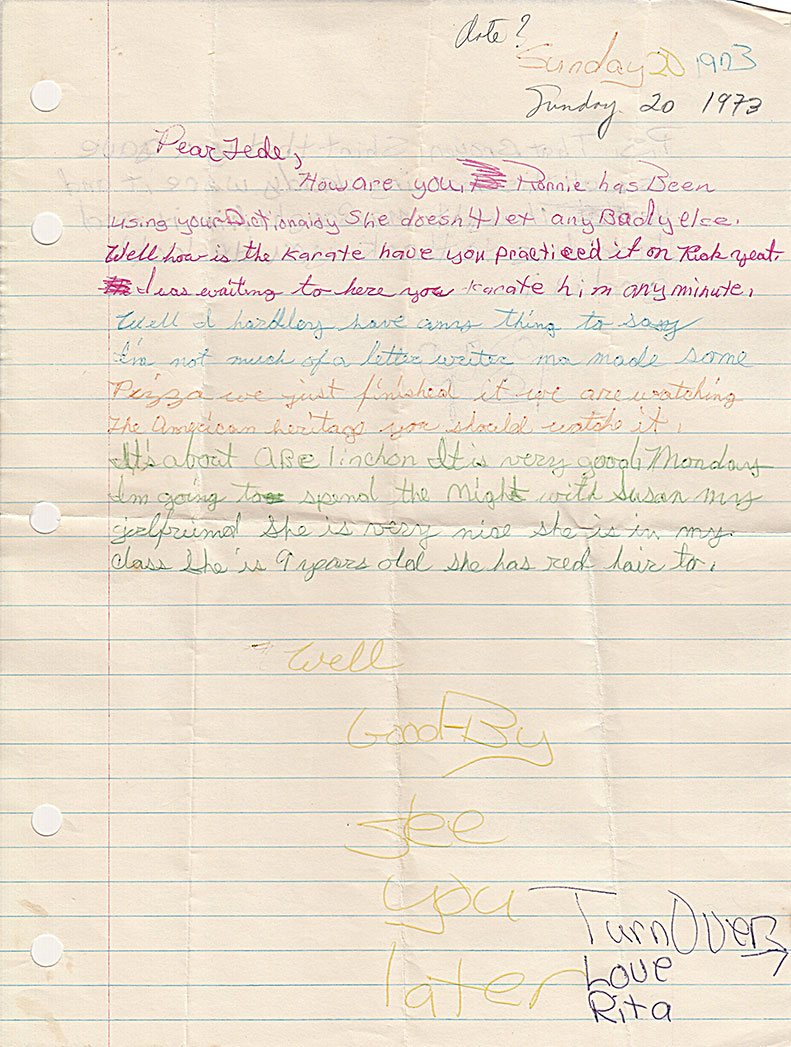 date?
Sunday 20 1973
Sunday 20 1973
Dear Tede,
How are you, Ronnie has Been
using your Dictionaidy She doesn4t let any Bady else.
Well how is the karate have you practiced it on Rick yeat.
I was waiting to here you karate him any minute.
Well I hardley have any thing to say
I'm not much of a letter writer ma made some
Pizza we just finished it we are watching
the American heritage you should watch it.
It's about ABe linchon It is very good, Monday
I'm going to spend the Might with Susan my
girlfriend she is very nice she is in my
class She is 9 years old she has red hair to.
Well
Good-By
see
you
later
Turn Over
Love
Rita